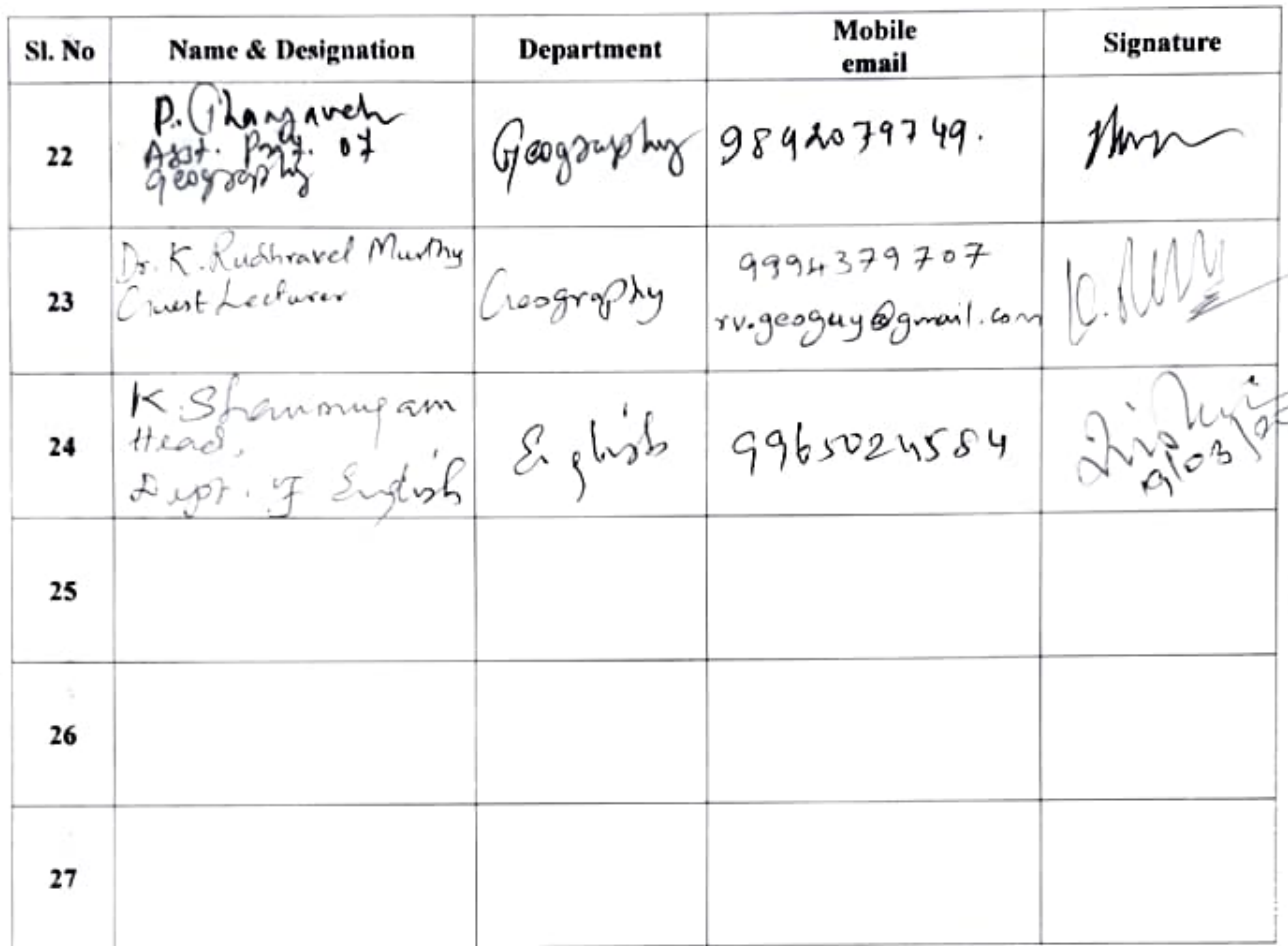 Sl. No Name & Designation Department Mobile email Signature
22 P. Thangavel Asst. Prof. of Geography Geography 9842079749.
23 Dr. K. Rudhravel Murthy Guest Lecturer Geography 9994379707 rv.geoguy@gmail.com
24 K. Shanmugam Head, Dept. of English English 9965024584
25
26
27